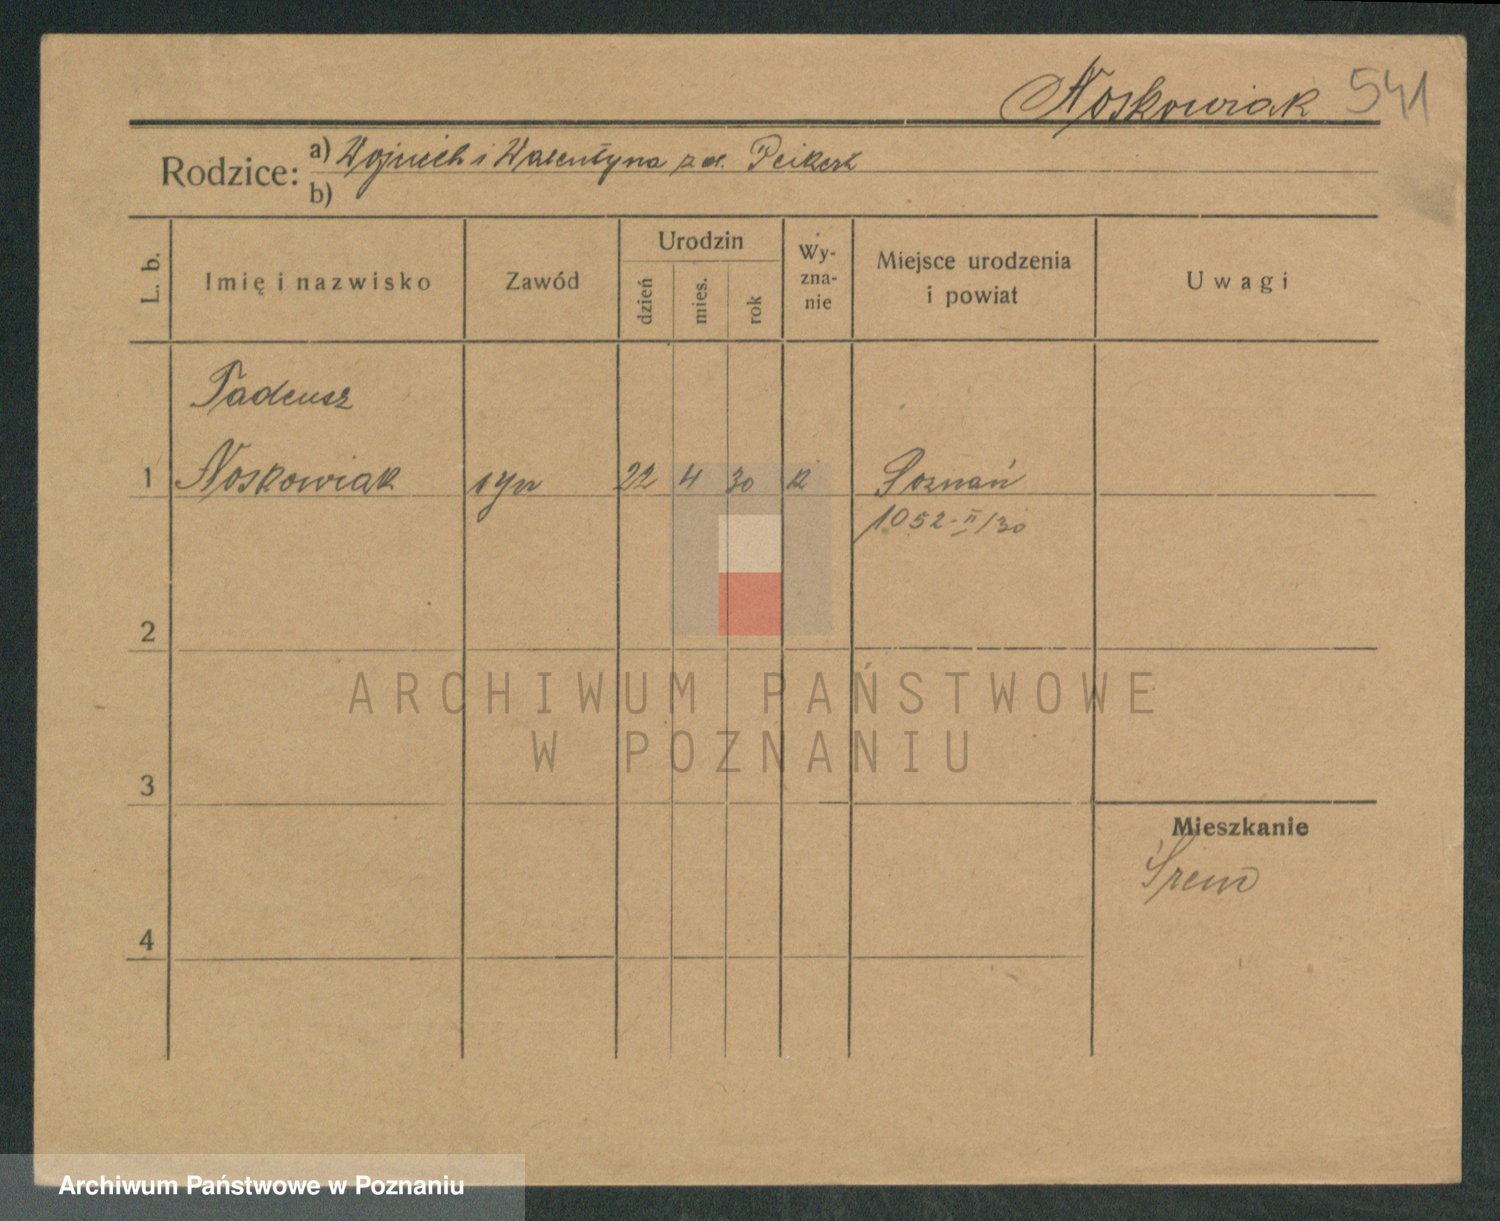 Noskowiak 541
Rodzice: a) Wojciech i Walentyna z d. Peikert
b)
L. b. Imię i nazwisko Zawód Urodzin dzień mies. rok Wy-zna-nie Miejsce urodzenia i powiat Uwagi
Tadeusz
1 Noskowiak syn 22 4 30 k Poznań
1052-II/30
2
ARCHIWUM PAŃSTWOWE
W POZNANIU
3
Mieszkanie
Śrem
4
Archiwum Państwowe w Poznaniu